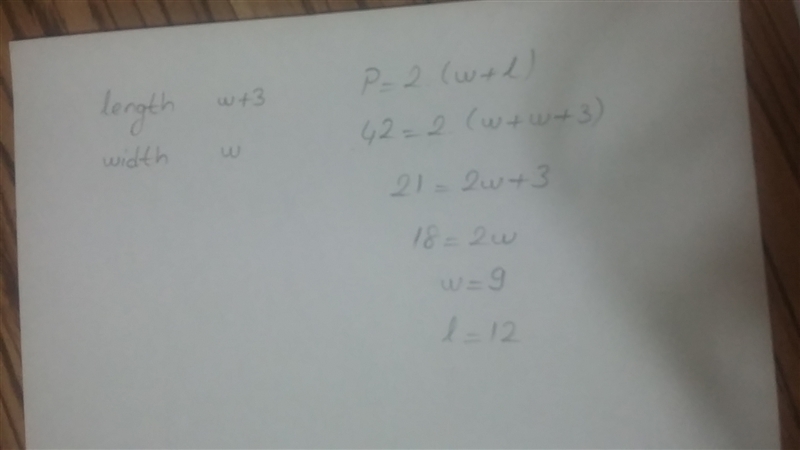 length w+3
width w
P=2 (w+l)
42=2 (w+w+3)
21=2w+3
18=2w
w=9
l=12